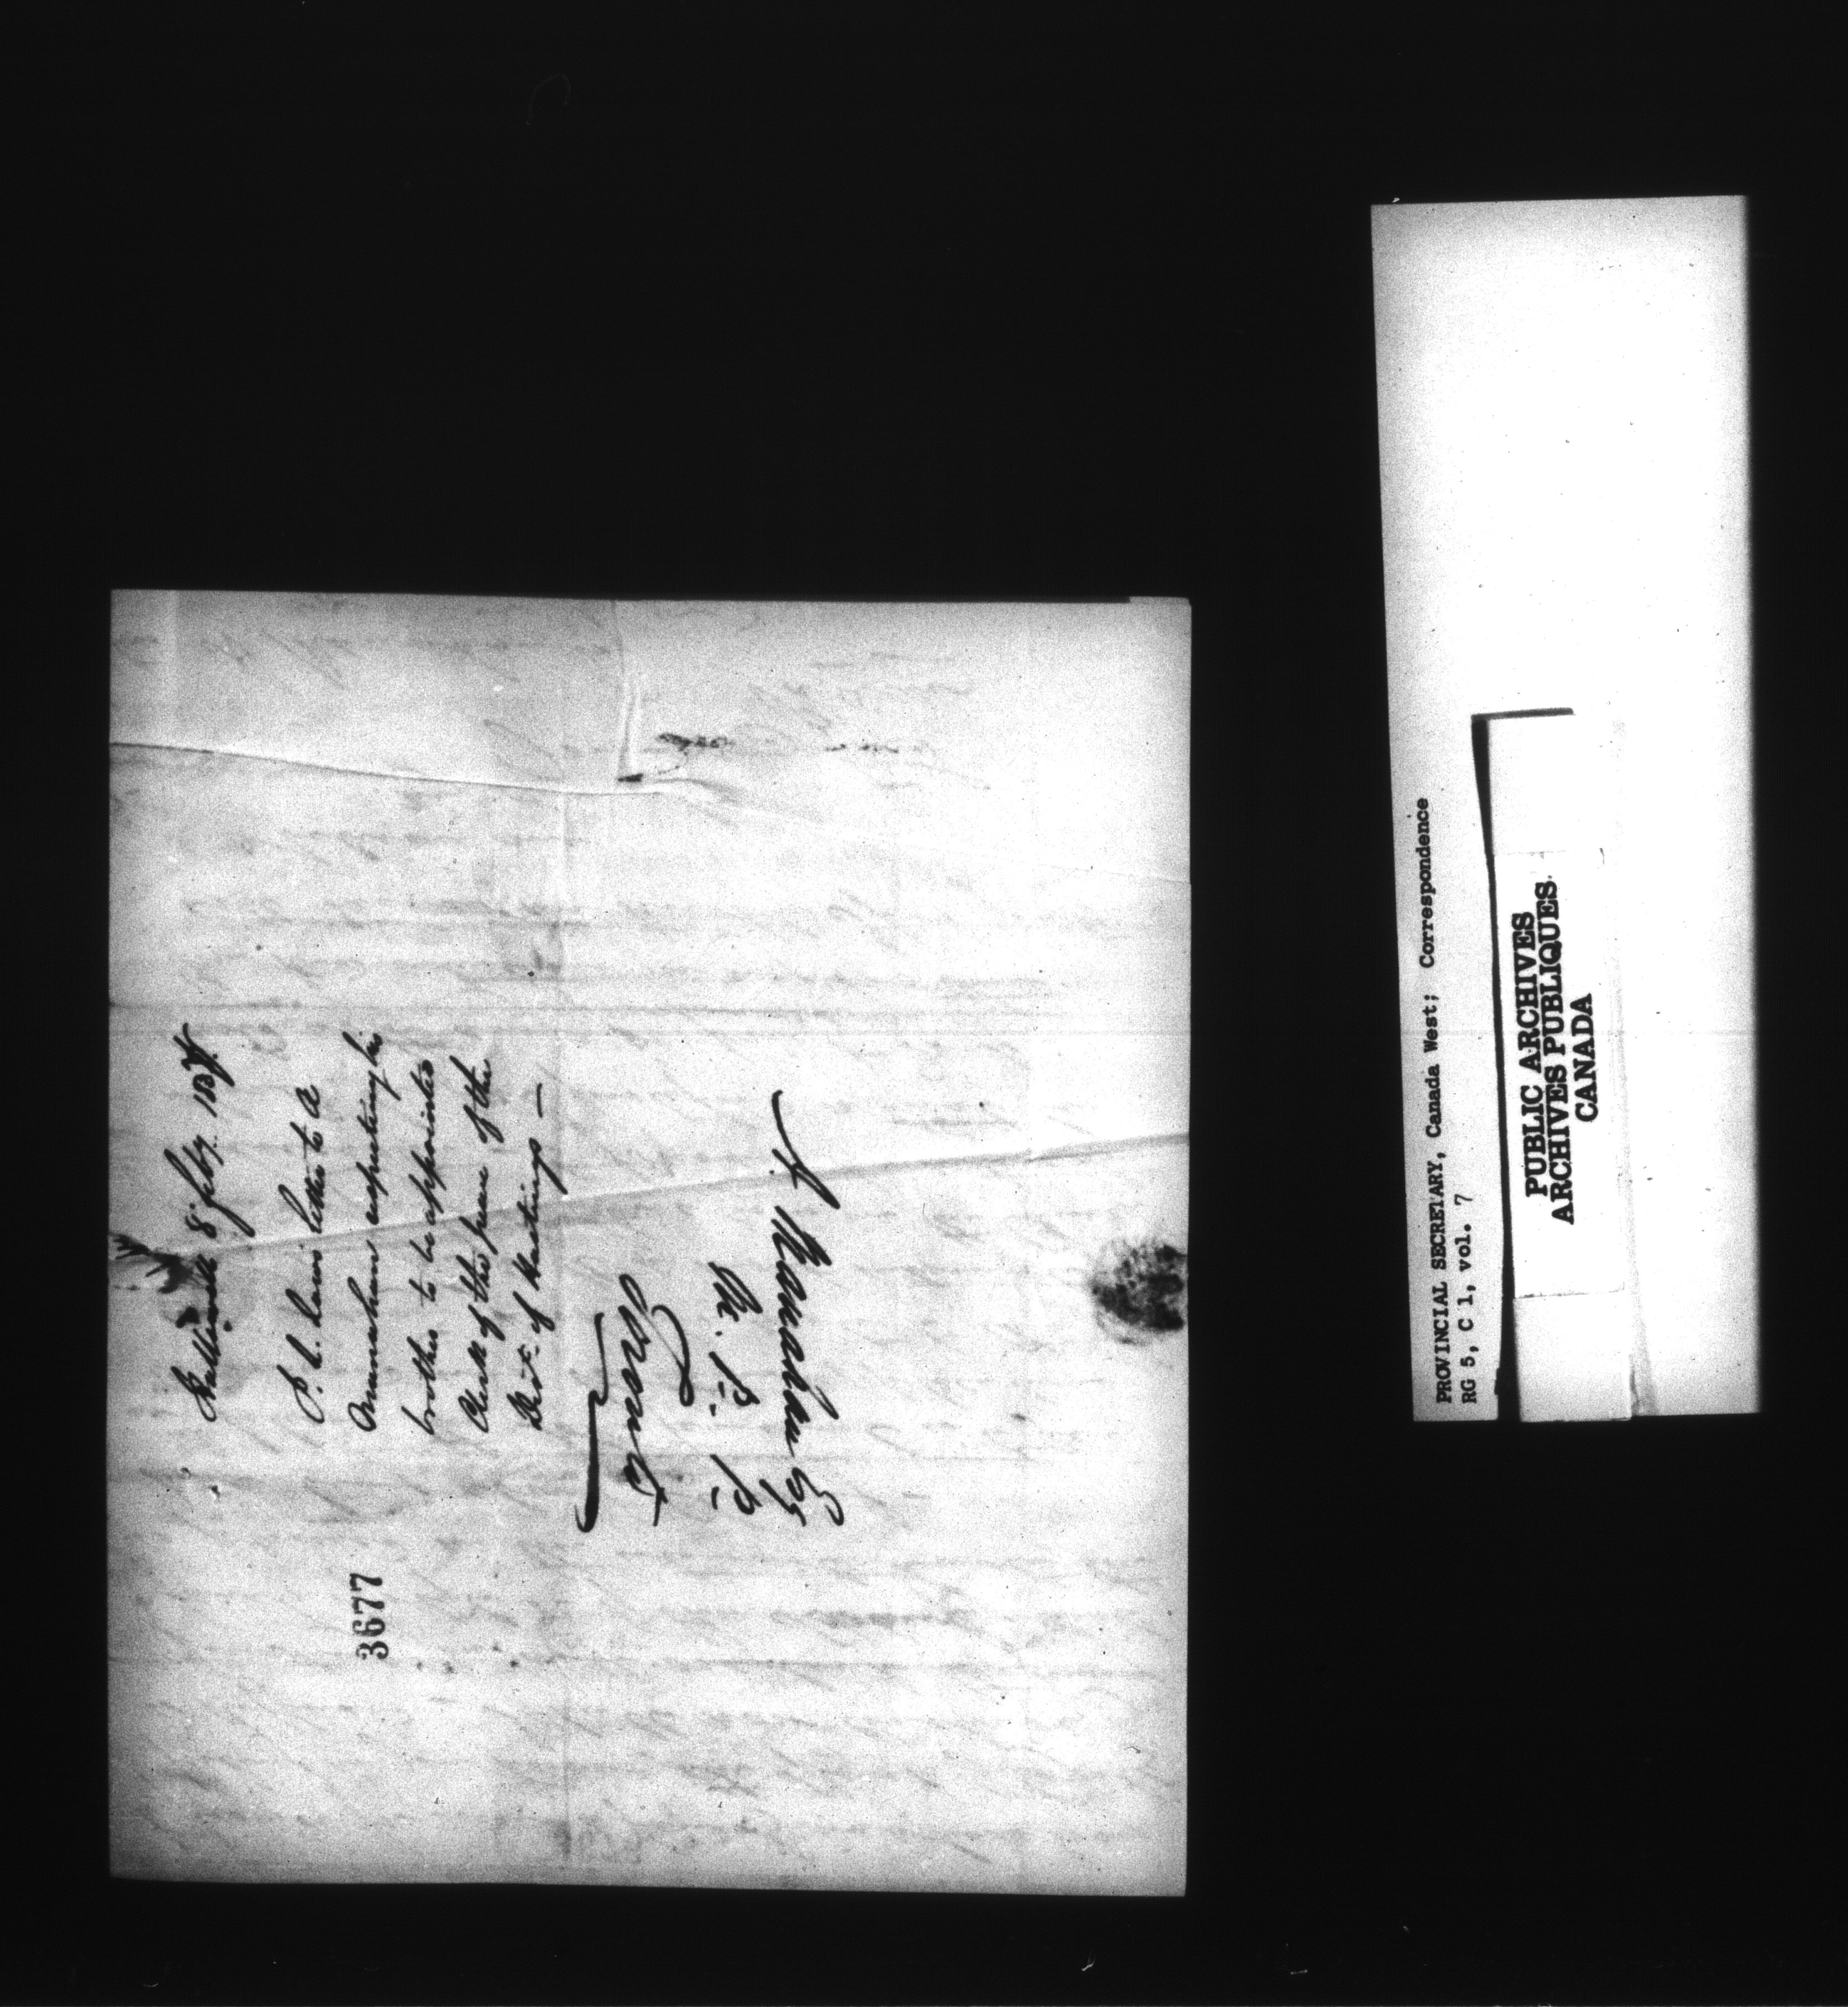 Belleville 8 feby 183
P. C. letter to A
Manahan requesting his
brother to be appointed
Clerk of the peace of the
Dist. of Hastings —
A Manahan Esq
M. P. P.
Toronto
3677
PROVINCIAL SECRETARY, Canada West; Correspondence
RG 5, C 1, vol. 7
PUBLIC ARCHIVES
ARCHIVES PUBLIQUES
CANADA